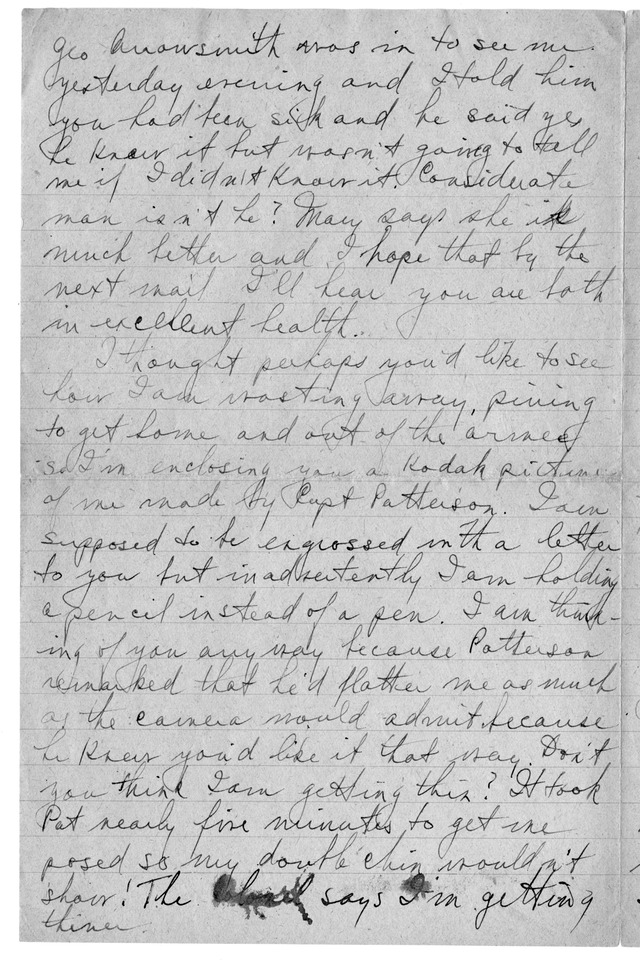 Geo Arrowsmith was in to see me
yesterday evening and I told him
you had been sick and he said yes
he knew it but wasn't going to tell
me if I didn't know it. Considerate
man isn't he? Mary says she is
much better and I hope that by the
next mail I'll hear you are both
in excellent health.
I thought perhaps you'd like to see
how I am wasting away, pining
to get home and out of the army
so I'm enclosing you a Kodak picture
of me made by Capt Patterson. I am
supposed to be engrossed in the a letter
to you but inadvertently I am holding
a pencil instead of a pen. I am think-
ing of you anyway because Patterson
remarked that he'd flatter me as much
as the camera would admit because
he knew you'd like it that way. Don't
you think I am getting thin? It took
Pat nearly five minutes to get me
posed so my double chin wouldn't
show! The says I'm getting
thiner.